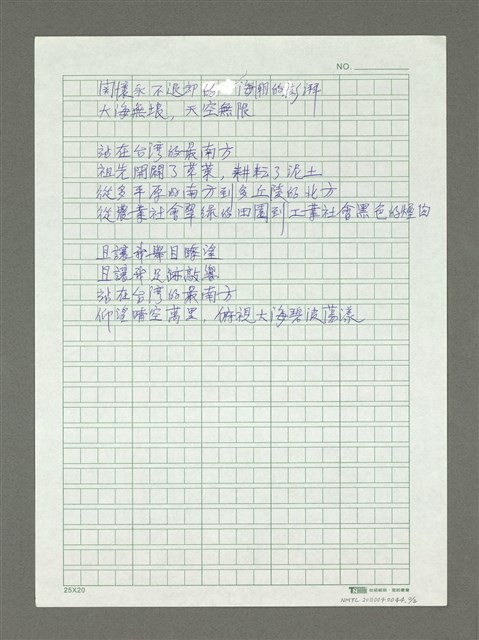 NO.
關懷永不退却的 海潮的澎湃
大海無垠，天空無限
站在台湾的最南方
祖先開闢了草萊，耕耘了泥土
從多平原的南方到多丘陵的北方
從農業社會翠綠的田園到工業社會黑色的煙囪
且讓我舉目瞭望
且讓我足跡敲響
站在台湾的最南方
仰望晴空萬里，俯視大海碧波蕩漾
25X20